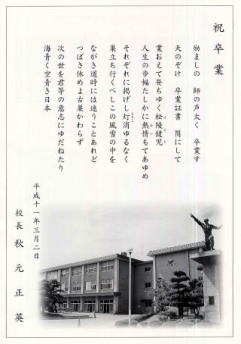 祝 卒 業
励ましの 師の声太く 卒業す
天のぞけ 卒業証書 筒にして
業おえて発ちゆく松陵健児
人生の歩幅たしかに熱情もてあゆめ
それぞれに掲げし灯消ゆるなく
巣立ち行くべしこの風雪の中を
ながき道時には迷うことあれど
つばさ休めよ古巣かわらず
次の世を君等の意志にゆだねたり
海青く空青き日本
平成十一年三月二日
校長 秋元正英